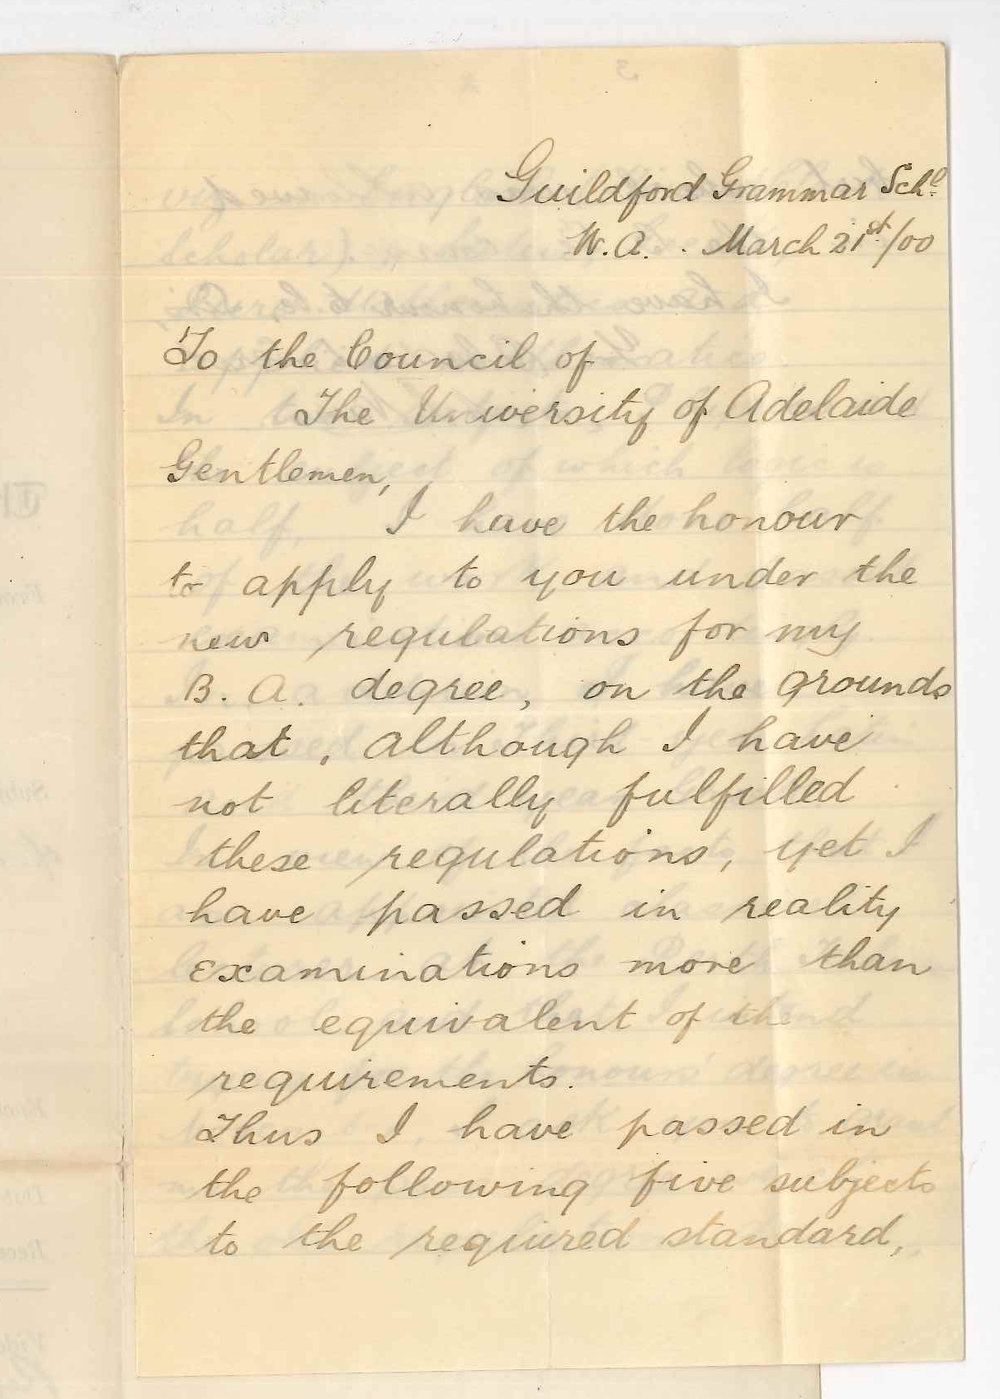 Guildford Grammar Schl.
W. A. . March 21st./00
To the Council of
The University of Adelaide
Gentlemen,
I have the honour
to apply to you under the
new regulations for my
B. A. degree, on the grounds
that, although I have
not literally fulfilled
these regulations, yet I
have passed in reality
examinations more than
the equivalent of the
requirements.
Thus I have passed in
the following five subjects
to the required standard,